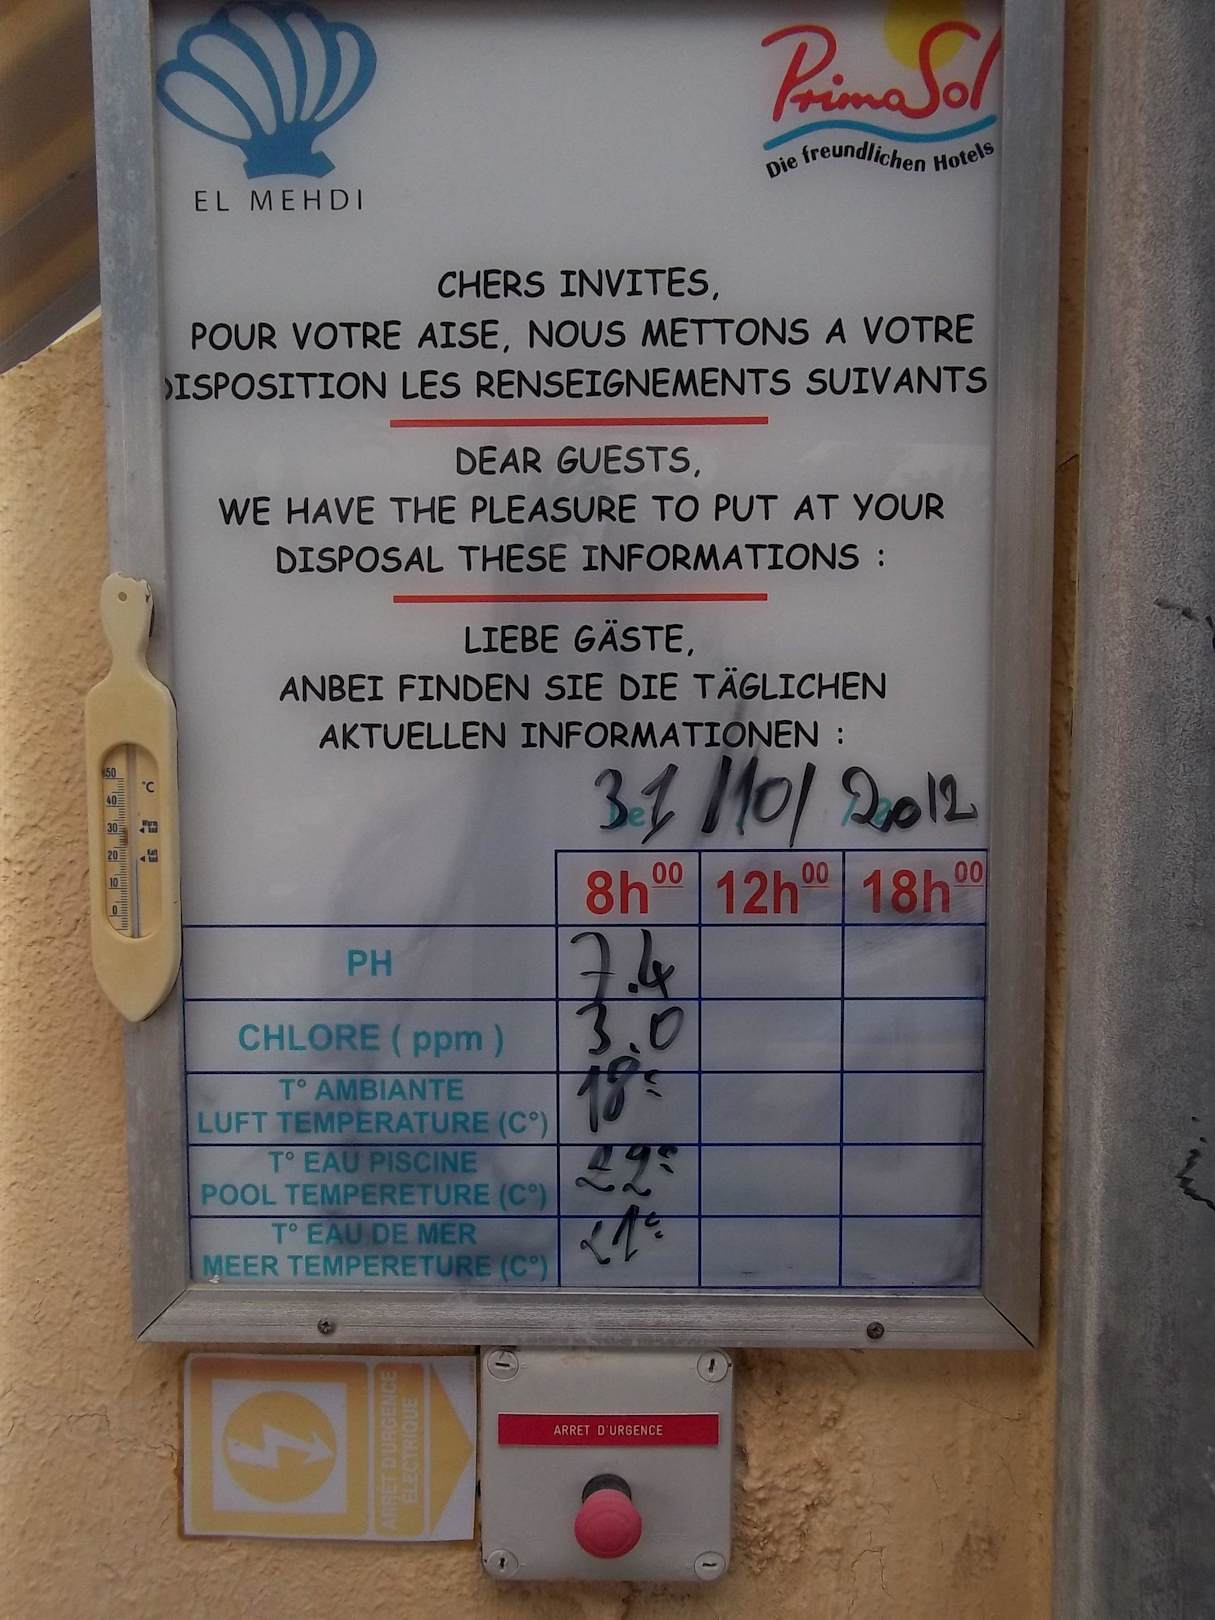 EL MEHDI
PrimaSol
Die freundlichen Hotels
CHERS INVITES,
POUR VOTRE AISE, NOUS METTONS A VOTRE
DISPOSITION LES RENSEIGNEMENTS SUIVANTS
DEAR GUESTS,
WE HAVE THE PLEASURE TO PUT AT YOUR
DISPOSAL THESE INFORMATIONS :
LIEBE GÄSTE,
ANBEI FINDEN SIE DIE TÄGLICHEN
AKTUELLEN INFORMATIONEN :
31/10/2012
8h00 12h00 18h00
PH 7.4
CHLORE ( ppm ) 3.0
T° AMBIANTE
LUFT TEMPERATURE (C°) 18°
T° EAU PISCINE
POOL TEMPERETURE (C°) 22°
T° EAU DE MER
MEER TEMPERETURE (C°) 21°
°C
50
40
30
20
10
0
ARRÊT D'URGENCE
ÉLECTRIQUE
ARRET D'URGENCE